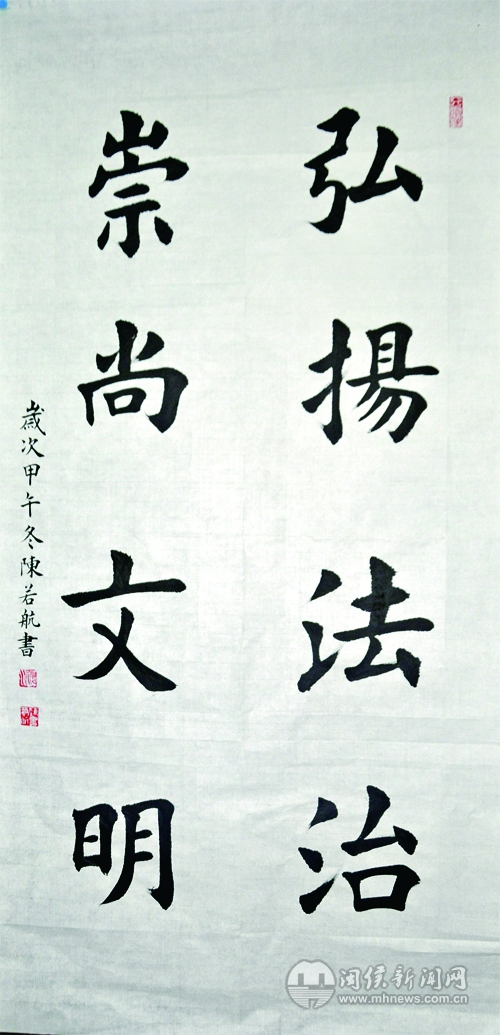 弘揚法治
崇尚文明
歲次甲午冬陳若航書
闽侯新闻网
www.mhnews.com.cn